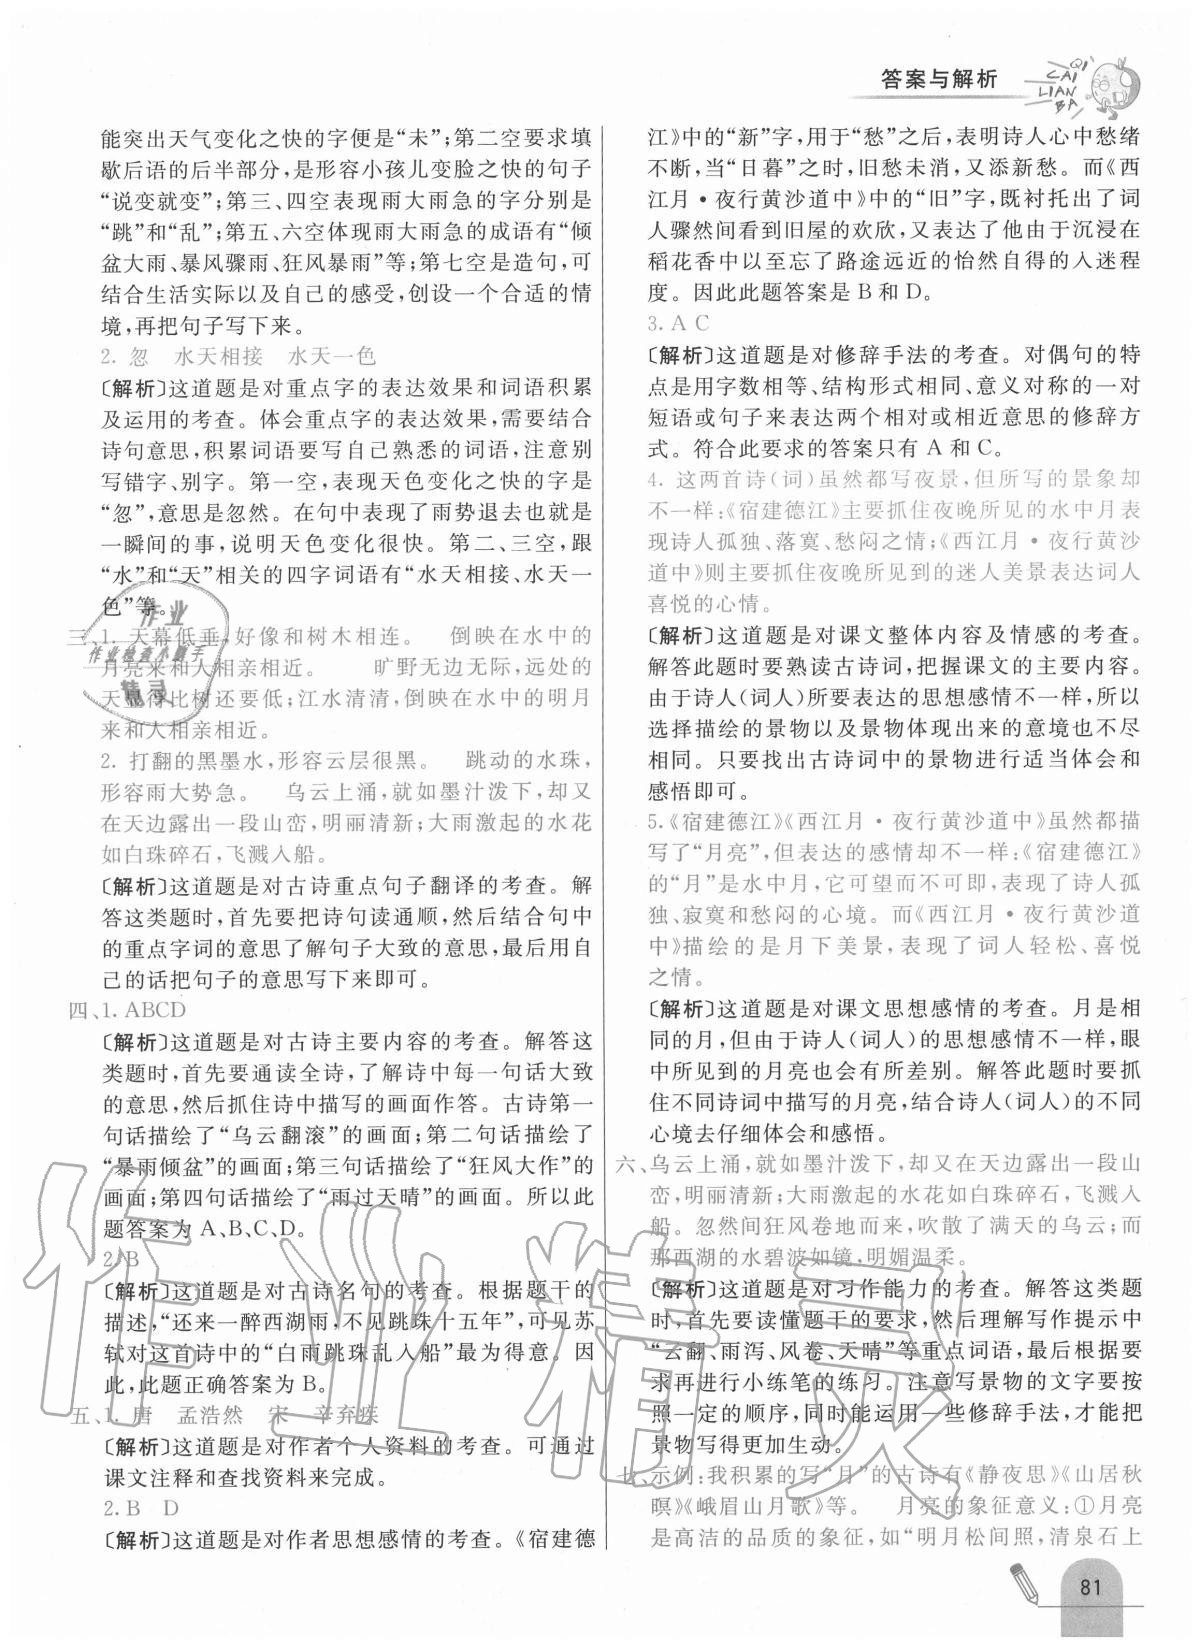 答案与解析
QI
CAI
LIAN
BA
能突出天气变化之快的字便是“未”;第二空要求填
歇后语的后半部分,是形容小孩儿变脸之快的句子
“说变就变”;第三、四空表现雨大雨急的字分别是
“跳”和“乱”;第五、六空体现雨大雨急的成语有“倾
盆大雨、暴风骤雨、狂风暴雨”等;第七空是造句,可
结合生活实际以及自己的感受,创设一个合适的情
境,再把句子写下来。
2. 忽 水天相接 水天一色
〔解析〕这道题是对重点字的表达效果和词语积累
及运用的考查。体会重点字的表达效果,需要结合
诗句意思,积累词语要写自己熟悉的词语,注意别
写错字、别字。第一空,表现天色变化之快的字是
“忽”,意思是忽然。在句中表现了雨势退去也就是
一瞬间的事,说明天色变化很快。第二、三空,跟
“水”和“天”相关的四字词语有“水天相接、水天一
色”等。
三、1. 天幕低垂,好像和树木相连。 倒映在水中的
月亮来和人相亲相近。 旷野无边无际,远处的
天显得比树还要低;江水清清,倒映在水中的明月
来和人相亲相近。
2. 打翻的黑墨水,形容云层很黑。 跳动的水珠,
形容雨大势急。 乌云上涌,就如墨汁泼下,却又
在天边露出一段山峦,明丽清新;大雨激起的水花
如白珠碎石,飞溅入船。
〔解析〕这道题是对古诗重点句子翻译的考查。解
答这类题时,首先要把诗句读通顺,然后结合句中
的重点字词的意思了解句子大致的意思,最后用自
己的话把句子的意思写下来即可。
四、1. ABCD
〔解析〕这道题是对古诗主要内容的考查。解答这
类题时,首先要通读全诗,了解诗中每一句话大致
的意思,然后抓住诗中描写的画面作答。古诗第一
句话描绘了“乌云翻滚”的画面;第二句话描绘了
“暴雨倾盆”的画面;第三句话描绘了“狂风大作”的
画面;第四句话描绘了“雨过天晴”的画面。所以此
题答案为 A、B、C、D。
2. B
〔解析〕这道题是对古诗名句的考查。根据题干的
描述,“还来一醉西湖雨,不见跳珠十五年”,可见苏
轼对这首诗中的“白雨跳珠乱入船”最为得意。因
此,此题正确答案为 B。
五、1. 唐 孟浩然 宋 辛弃疾
〔解析〕这道题是对作者个人资料的考查。可通过
课文注释和查找资料来完成。
2. B D
〔解析〕这道题是对作者思想感情的考查。《宿建德
江》中的“新”字,用于“愁”之后,表明诗人心中愁绪
不断,当“日暮”之时,旧愁未消,又添新愁。而《西
江月·夜行黄沙道中》中的“旧”字,既衬托出了词
人骤然间看到旧屋的欢欣,又表达了他由于沉浸在
稻花香中以至忘了路途远近的怡然自得的入迷程
度。因此此题答案是 B 和 D。
3. A C
〔解析〕这道题是对修辞手法的考查。对偶句的特
点是用字数相等、结构形式相同、意义对称的一对
短语或句子来表达两个相对或相近意思的修辞方
式。符合此要求的答案只有 A 和 C。
4. 这两首诗(词)虽然都写夜景,但所写的景象却
不一样:《宿建德江》主要抓住夜晚所见的水中月表
现诗人孤独、落寞、愁闷之情;《西江月·夜行黄沙
道中》则主要抓住夜晚所见到的迷人美景表达词人
喜悦的心情。
〔解析〕这道题是对课文整体内容及情感的考查。
解答此题时要熟读古诗词,把握课文的主要内容。
由于诗人(词人)所要表达的思想感情不一样,所以
选择描绘的景物以及景物体现出来的意境也不尽
相同。只要找出古诗词中的景物进行适当体会和
感悟即可。
5.《宿建德江》《西江月·夜行黄沙道中》虽然都描
写了“月亮”,但表达的感情却不一样:《宿建德江》
的“月”是水中月,它可望而不可即,表现了诗人孤
独、寂寞和愁闷的心境。而《西江月·夜行黄沙道
中》描绘的是月下美景,表现了词人轻松、喜悦
之情。
〔解析〕这道题是对课文思想感情的考查。月是相
同的月,但由于诗人(词人)的思想感情不一样,眼
中所见到的月亮也会有所差别。解答此题时要抓
住不同诗词中描写的月亮,结合诗人(词人)的不同
心境去仔细体会和感悟。
六、乌云上涌,就如墨汁泼下,却又在天边露出一段山
峦,明丽清新;大雨激起的水花如白珠碎石,飞溅入
船。忽然间狂风卷地而来,吹散了满天的乌云;而
那西湖的水碧波如镜,明媚温柔。
〔解析〕这道题是对习作能力的考查。解答这类题
时,首先要读懂题干的要求,然后理解写作提示中
“云翻、雨泻、风卷、天晴”等重点词语,最后根据要
求再进行小练笔的练习。注意写景物的文字要按
照一定的顺序,同时能运用一些修辞手法,才能把
景物写得更加生动。
七、示例:我积累的写“月”的古诗有《静夜思》《山居秋
暝》《峨眉山月歌》等。 月亮的象征意义:①月亮
是高洁的品质的象征,如“明月松间照,清泉石上
81
作业
作业检查小助手
精灵
作业精灵